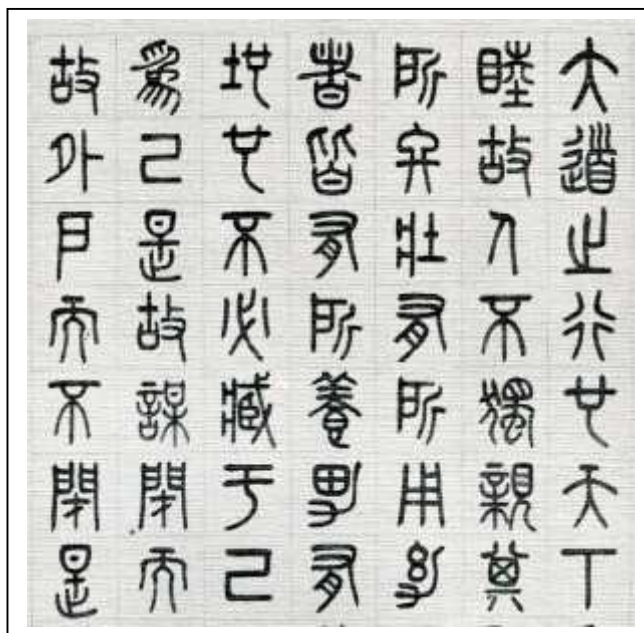 大道之行也天下
睦故人不獨親其
所終壯有所用幼
者皆有所養男有
地也不必藏于己
為己是故謀閉而
故外戶而不閉是